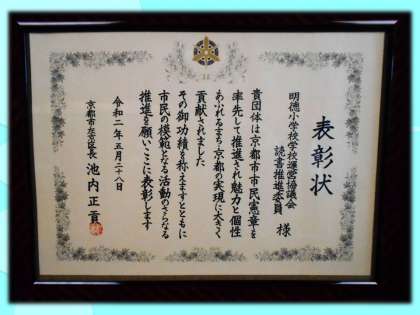 表彰状
明徳小学校学校運営協議会
読書推進委員 様
貴団体は京都市市民憲章を
率先して推進され魅力と個性
あふれるまち京都の実現に大きく
貢献されました
その御功績を称えますとともに
市民の模範となる活動のさらなる
推進を願いここに表彰します
令和二年五月二十八日
京都市左京区長 池内正貢